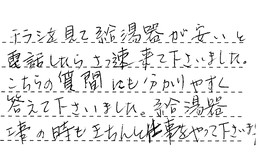 チラシを見て給湯器が安いと
電話したらさっ速来て下さいました。
こちらの質問にも分かりやすく
答えて下さいました。給湯器
工事の時もきちんと仕事をやって下さいま